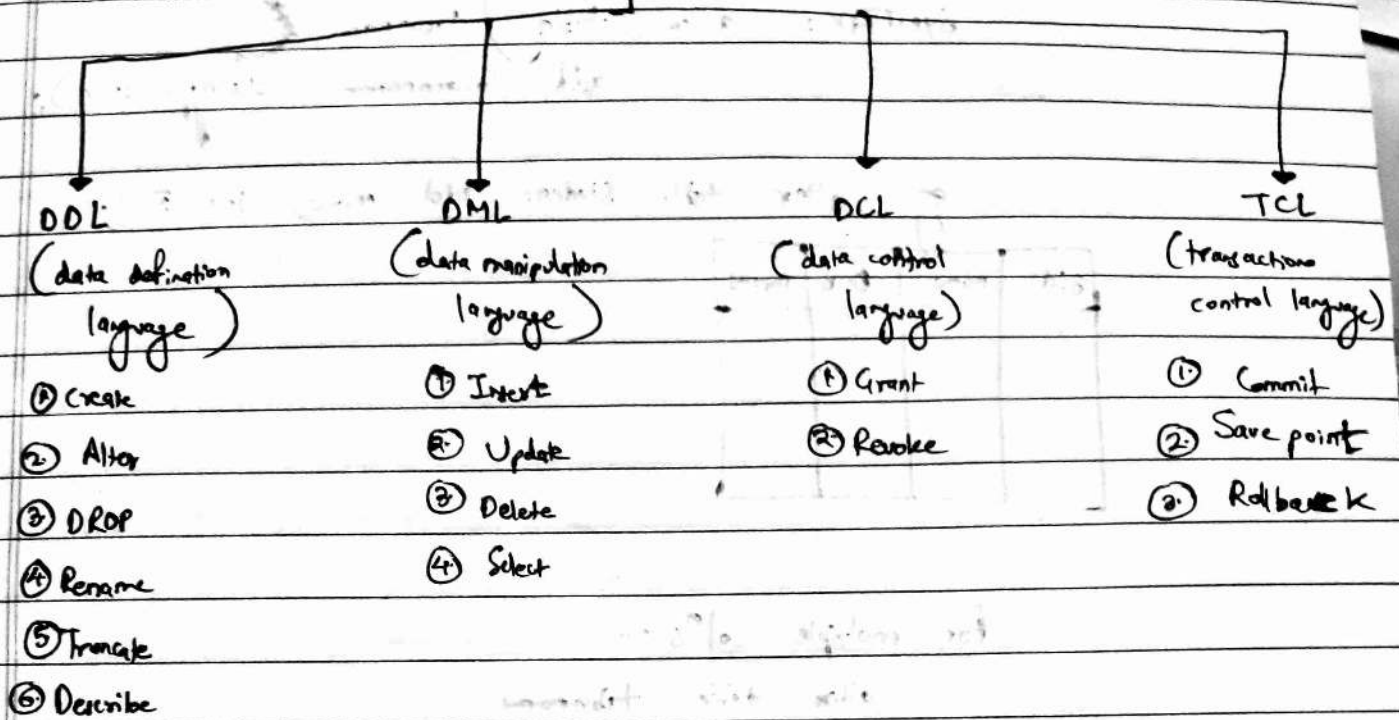 DDL
(data defination
language)
① Create
② Alter
③ DROP
④ Rename
⑤ Truncate
⑥ Describe
DML
(data manipulation
language)
① Insert
② Update
③ Delete
④ Select
DCL
(data control
language)
① Grant
② Revoke
TCL
(transactions
control language)
① Commit
② Save point
③ Rollback